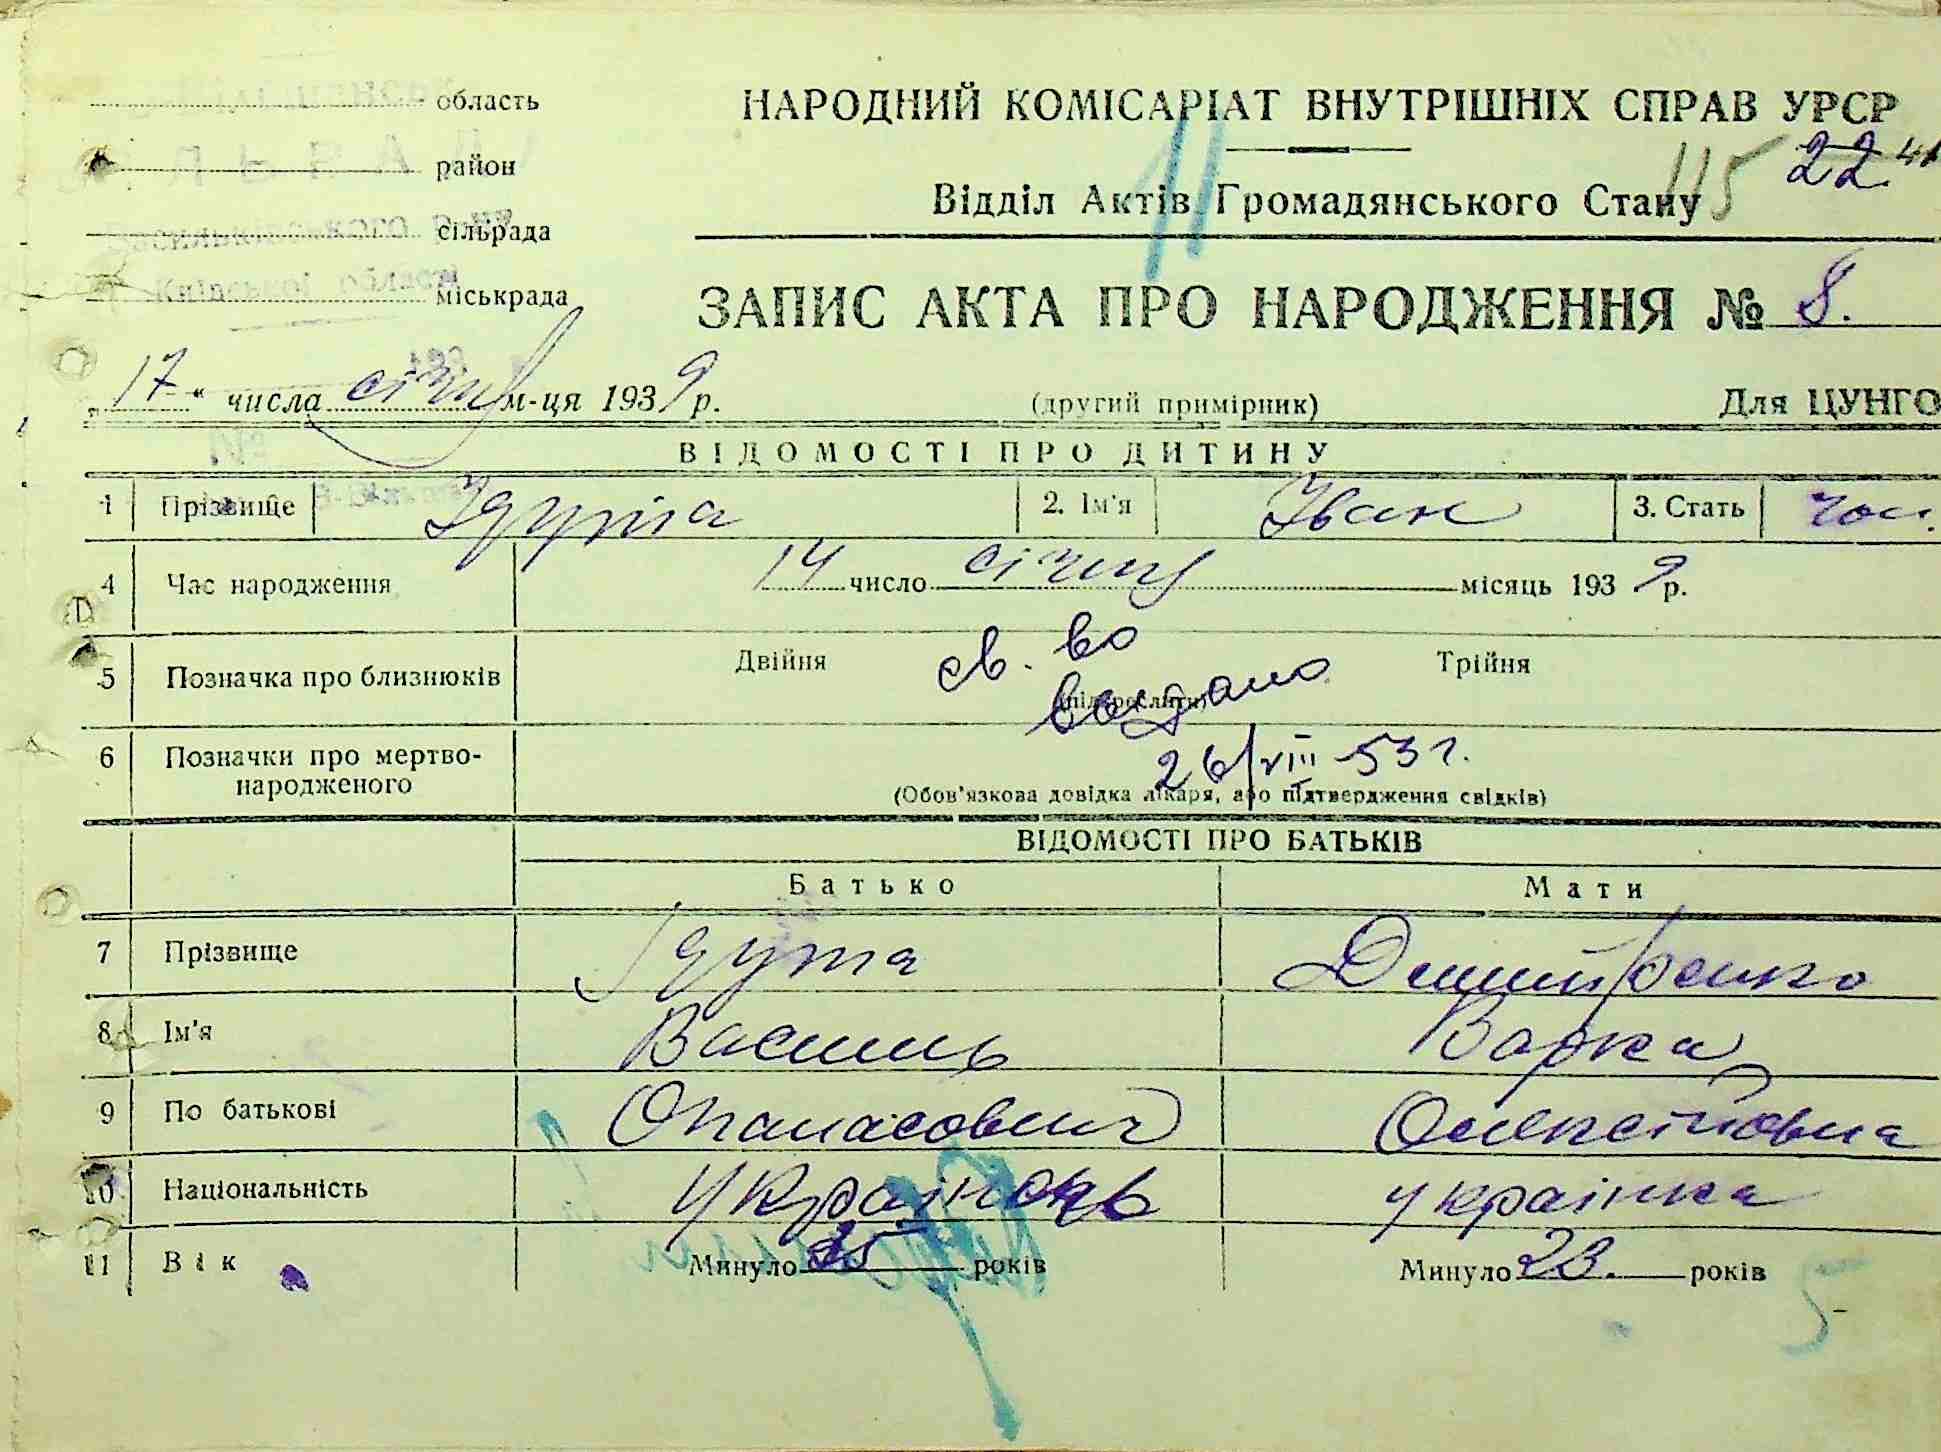 область
район
сільрада
міськрада
НАРОДНИЙ КОМІСАРІАТ ВНУТРІШНІХ СПРАВ УРСР
115 22
Відділ Актів Громадянського Стану
11
ЗАПИС АКТА ПРО НАРОДЖЕННЯ № 8.
„ 17 “ числа січня м-ця 1939 р.
(другий примірник)
Для ЦУНГО
ВІДОМОСТІ ПРО ДИТИНУ
1 Прізвище Ідута 2. Ім'я Іван 3. Стать чол.
4 Час народження 14 число січня місяць 1939 р.
5 Позначка про близнюків Двійня (підкреслити) Трійня
св. во
выдано
26/VIII-53 г.
6 Позначки про мертво-
народженого
(Обов'язкова довідка лікаря, або підтвердження свідків)
ВІДОМОСТІ ПРО БАТЬКІВ
Батько Мати
7 Прізвище Ідута Дмитренко
8 Ім'я Василь Варка
9 По батькові Опанасович Олексіївна
10 Національність українець українка
11 Вік Минуло 25 років Минуло 23. років
5